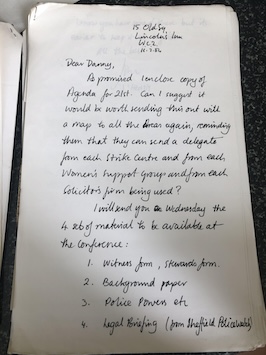 15 Old Sq
Lincoln's Inn
WC2
Dear Danny,
As promised I enclose copy of
Agenda for 21st. Can I suggest it
would be worth sending this out with
a map to all the areas again, reminding
them that they can send a delegate
from each Strike Centre and from each
Women's Support Group and from each
Solicitors firm being used?
I will send you on Wednesday the
4 sets of material to be available at
the Conference:
1. Witness form, stewards form.
2. Background paper
3. Police Powers etc
4. Legal Briefing (from Sheffield Policewatch)